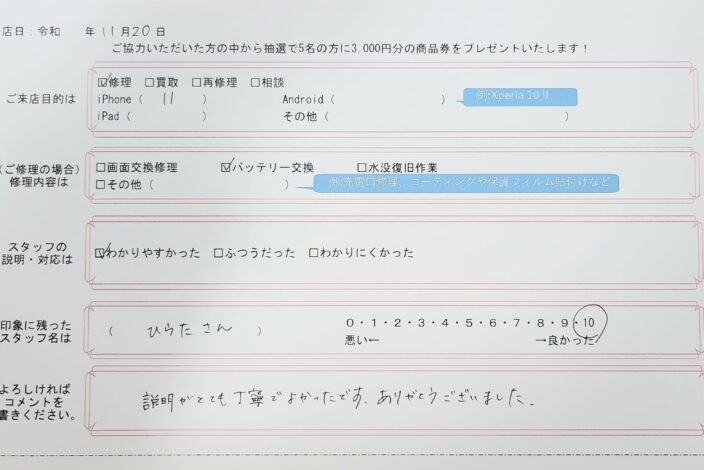 店日：令和　年 11 月 20 日
ご協力いただいた方の中から抽選で5名の方に3,000円分の商品券をプレゼントいたします！
ご来店目的は
☑修理　□買取　□再修理　□相談
iPhone（　11　）　Android（　　）　例:Xperia 10 II
iPad（　　）　その他（　　）
（ご修理の場合）
修理内容は
□画面交換修理　☑バッテリー交換　□水没復旧作業
□その他（　　）　例:充電口修理、コーティングや保護フィルム貼付けなど
スタッフの
説明・対応は
☑わかりやすかった　□ふつうだった　□わかりにくかった
印象に残った
スタッフ名は
（　ひらたさん　）
0・1・2・3・4・5・6・7・8・9・10
悪い←　→良かった
よろしければ
コメントを
書きください。
説明がとても丁寧でよかったです、ありがとうございました。